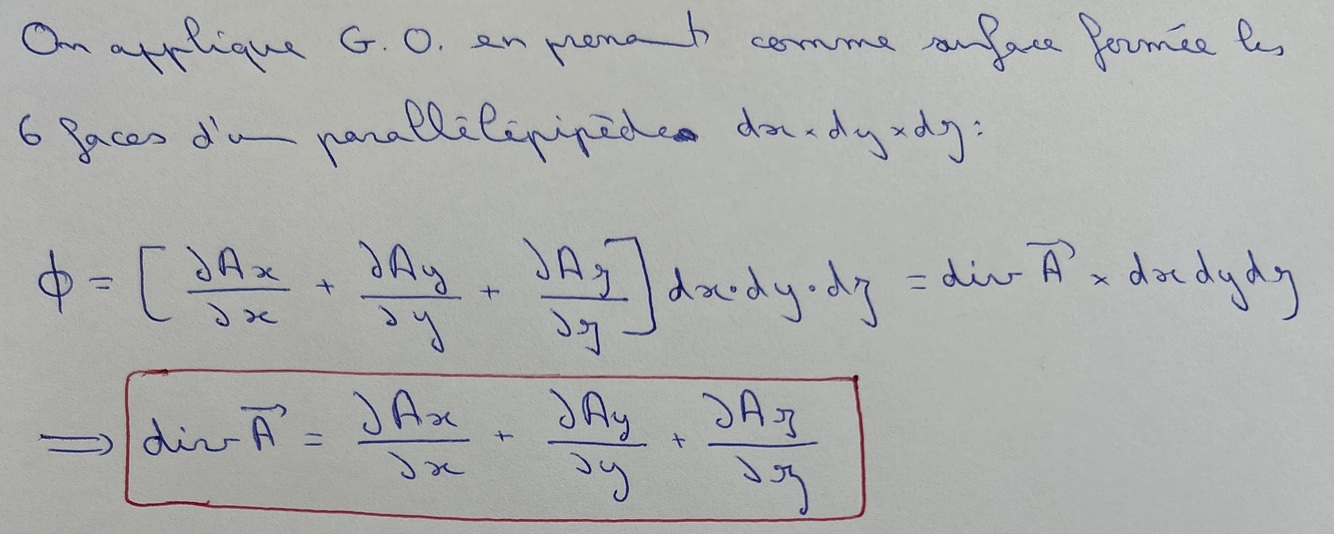 On applique G. O. en prenant comme surface fermée les
6 faces d'un parallélépipède dx × dy × dz :
ϕ = [ ∂Ax/∂x + ∂Ay/∂y + ∂Az/∂z ] dx·dy·dz = div A⃗ × dx dy dz
⟹ div A⃗ = ∂Ax/∂x + ∂Ay/∂y + ∂Az/∂z